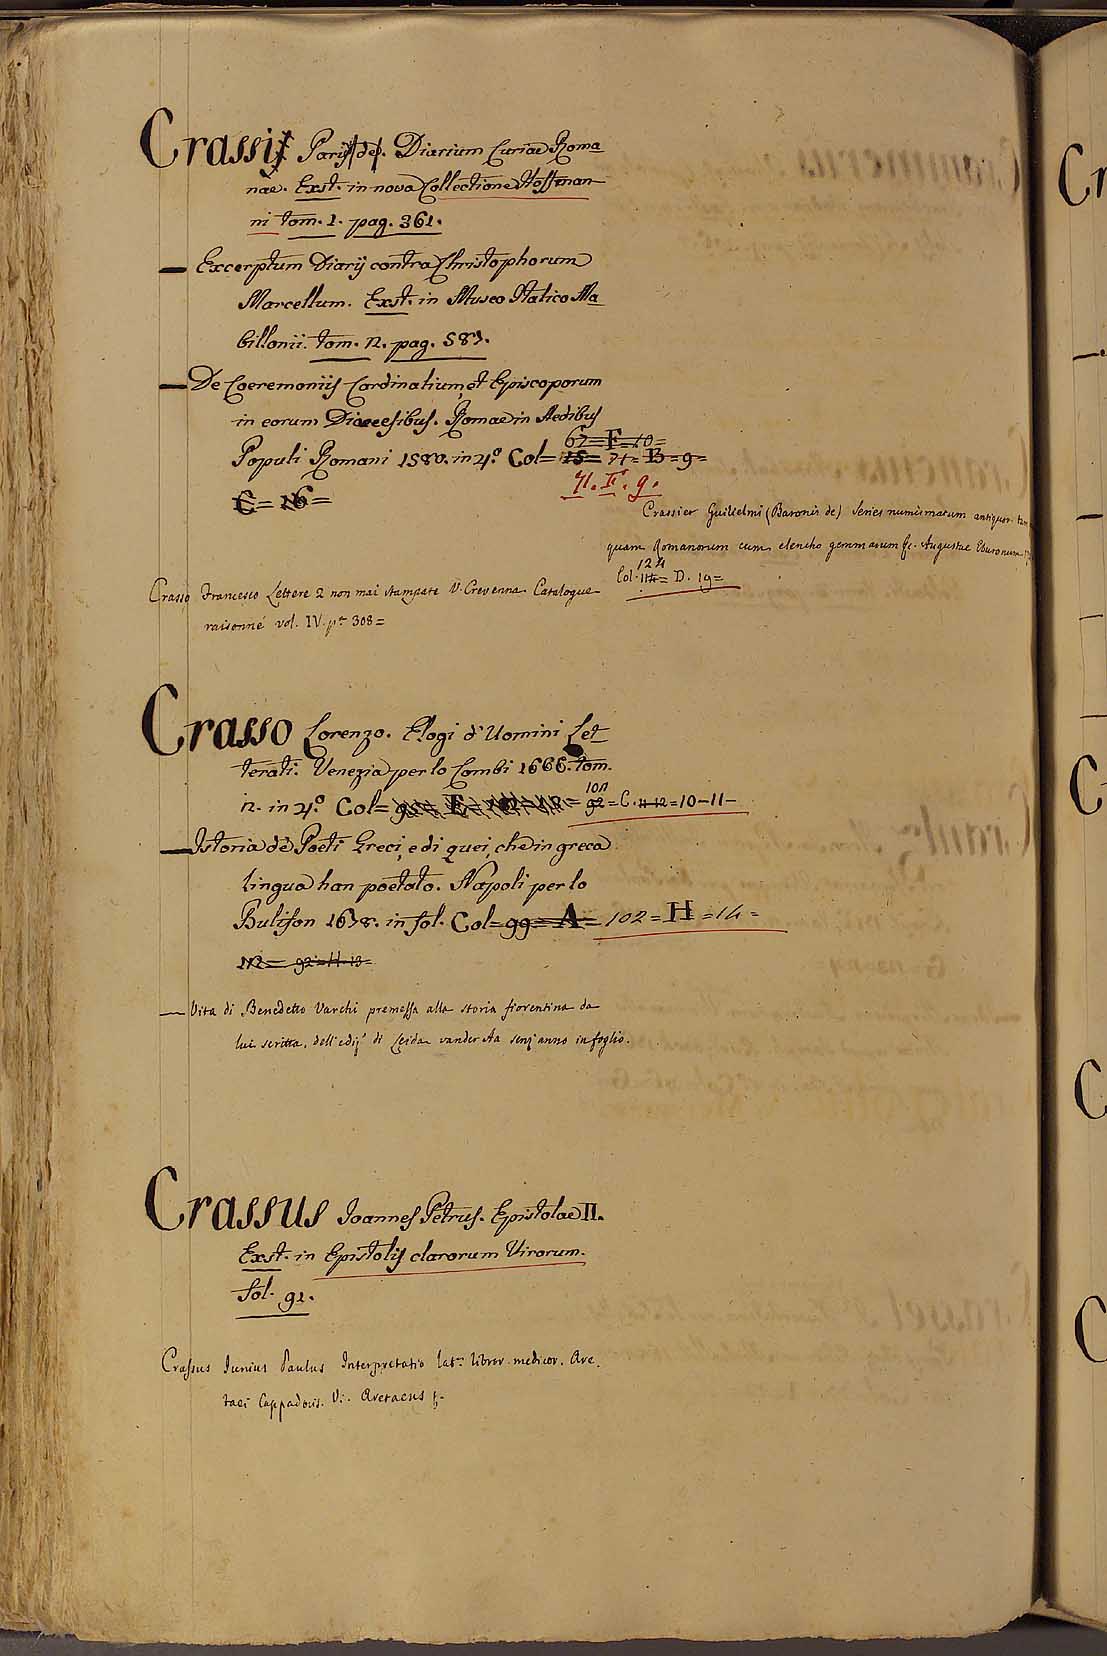 Crassis Parijs de. Diarium Curiae Roma=
nae. Exst. in nova Collectione Hoffman=
ni tom. 1. pag. 361.
— Excerptum Diarij contra Christophorum
Marcellum. Exst. in Museo Italico Ma=
billonii. tom. 2. pag. 587.
— De Coeremoniis Cardinalium, et Episcoporum
in eorum Dioecesibus. Romae in Aedibus
67=F=10=
Populi Romani 1580. in 4.° Col= 15= 71= B=9=
71. F. 9.
C=16=
Crassier Guilielmi (Baronis de) Series numismatum antiquor. tam
quam Romanorum cum elencho gemmarum &c. Augustae Eburonum
124
Col. 114= D. 19=
Crasso Francesco Lettere 2 non mai stampate V. Crevenna Catalogue
raisonné vol. IV. pag. 308=
Crasso Lorenzo. Elogi d'Uomini Let=
terati. Venezia per lo Combi 1666. tom.
101
2. in 4.° Col= 92=C. 11-12=10-11-
— Istoria dè Poeti Greci, e di quei, che in greca
lingua han poetato. Napoli per lo
Bulifon 1678. in fol. Col=99=A= 102=H=14=
112= 92=H-13=
— Vita di Benedetto Varchi premessa alla storia fiorentina da
lui scritta, dell'ediz.e di Leida vander Aa senz'anno in foglio.
Crassus Joannes Petrus. Epistolae II.
Exst. in Epistolis clarorum Virorum.
fol. 91.
Crassus Junius Paulus Interpretatio lat.a libror. medicor. Are
taei Cappadocis. V. Aretaeus